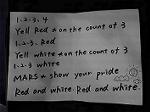 1.2.3.4
Yell Red * on the count of 3
1.2.3. Red
Yell white * on the count of 3
1.2.3 white
MARS * show your pride
Red and white. Red and white.